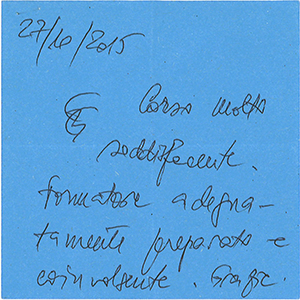 27/10/2015
Corso molto
soddisfacente.
Formatore adegua-
tamente preparato e
coinvolgente. Grazie.